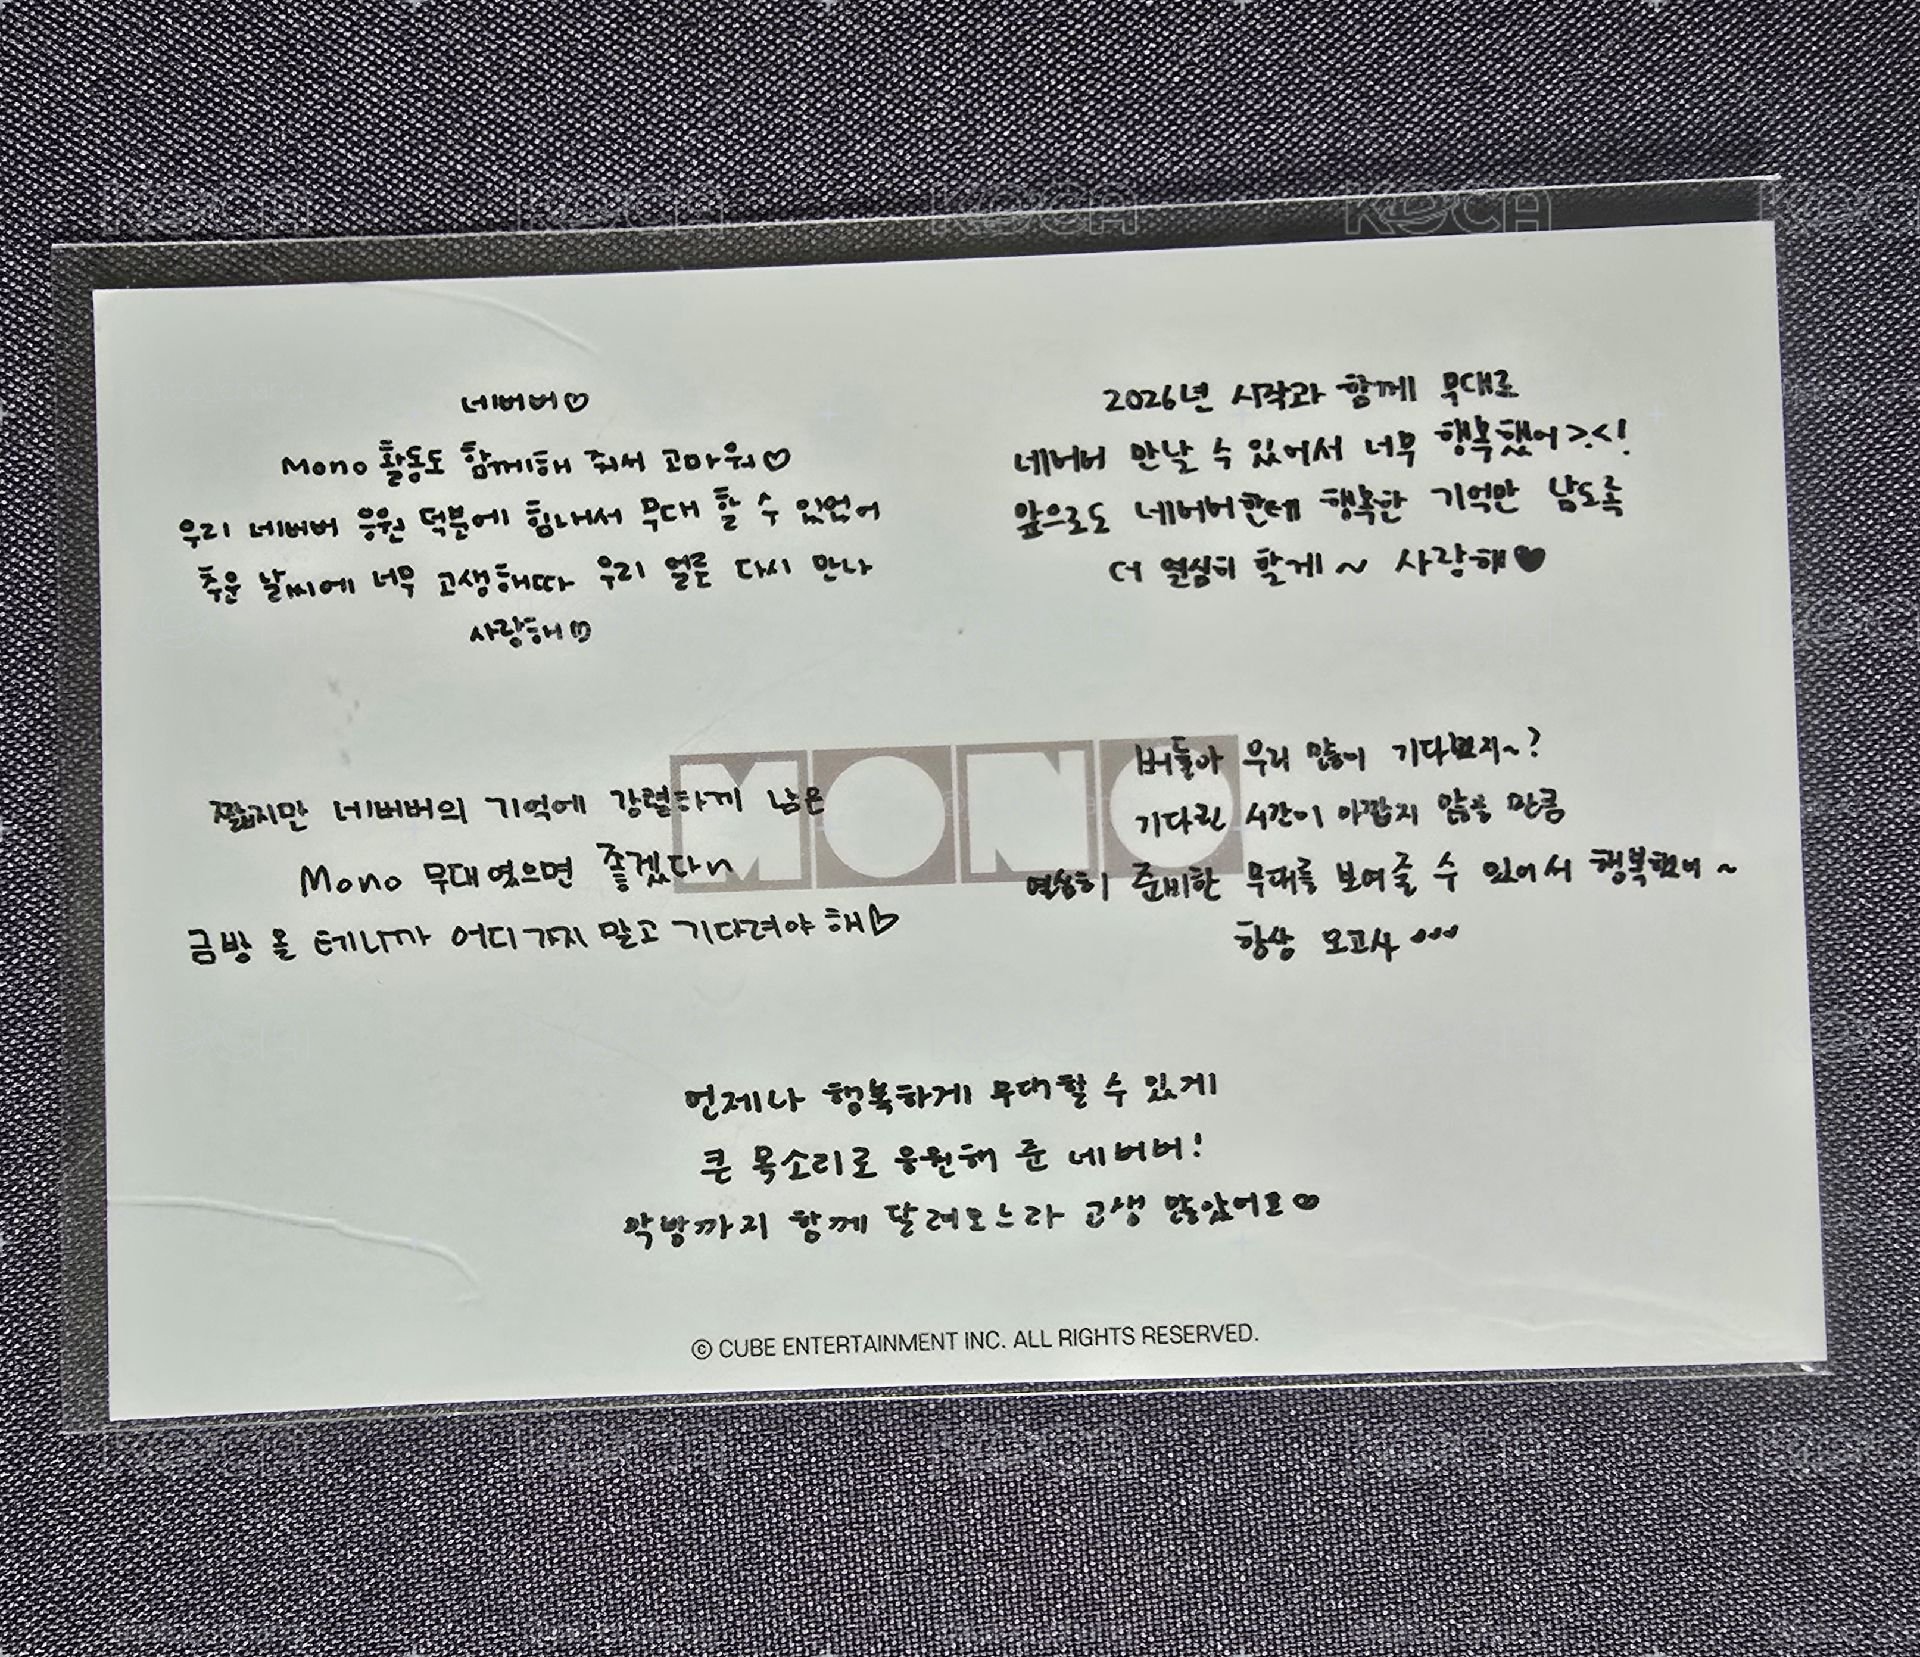 네버버♡
Mono 활동도 함께해 줘서 고마워♡
우리 네버버 응원 덕분에 힘내서 무대 할 수 있었어
추운 날씨에 너무 고생해따 우리 얼른 다시 만나
사랑해♡
2026년 시작과 함께 무대로
네버버 만날 수 있어서 너무 행복했어>.<!
앞으로도 네버버한테 행복한 기억만 남도록
더 열심히 할게~ 사랑해♥
짧지만 네버버의 기억에 강렬하게 남은
Mono 무대였으면 좋겠다ㅎ
금방 올 테니까 어디가지 말고 기다려야 해♡
MONO
버돌아 우리 많이 기다렸지~?
기다린 시간이 아깝지 않을 만큼
열심히 준비한 무대를 보여줄 수 있어서 행복했어~
항상 모고사
언제나 행복하게 무대할 수 있게
큰 목소리로 응원해 준 네버버!
막방까지 함께 달려오느라 고생 많았어요♡
© CUBE ENTERTAINMENT INC. ALL RIGHTS RESERVED.
KOCA